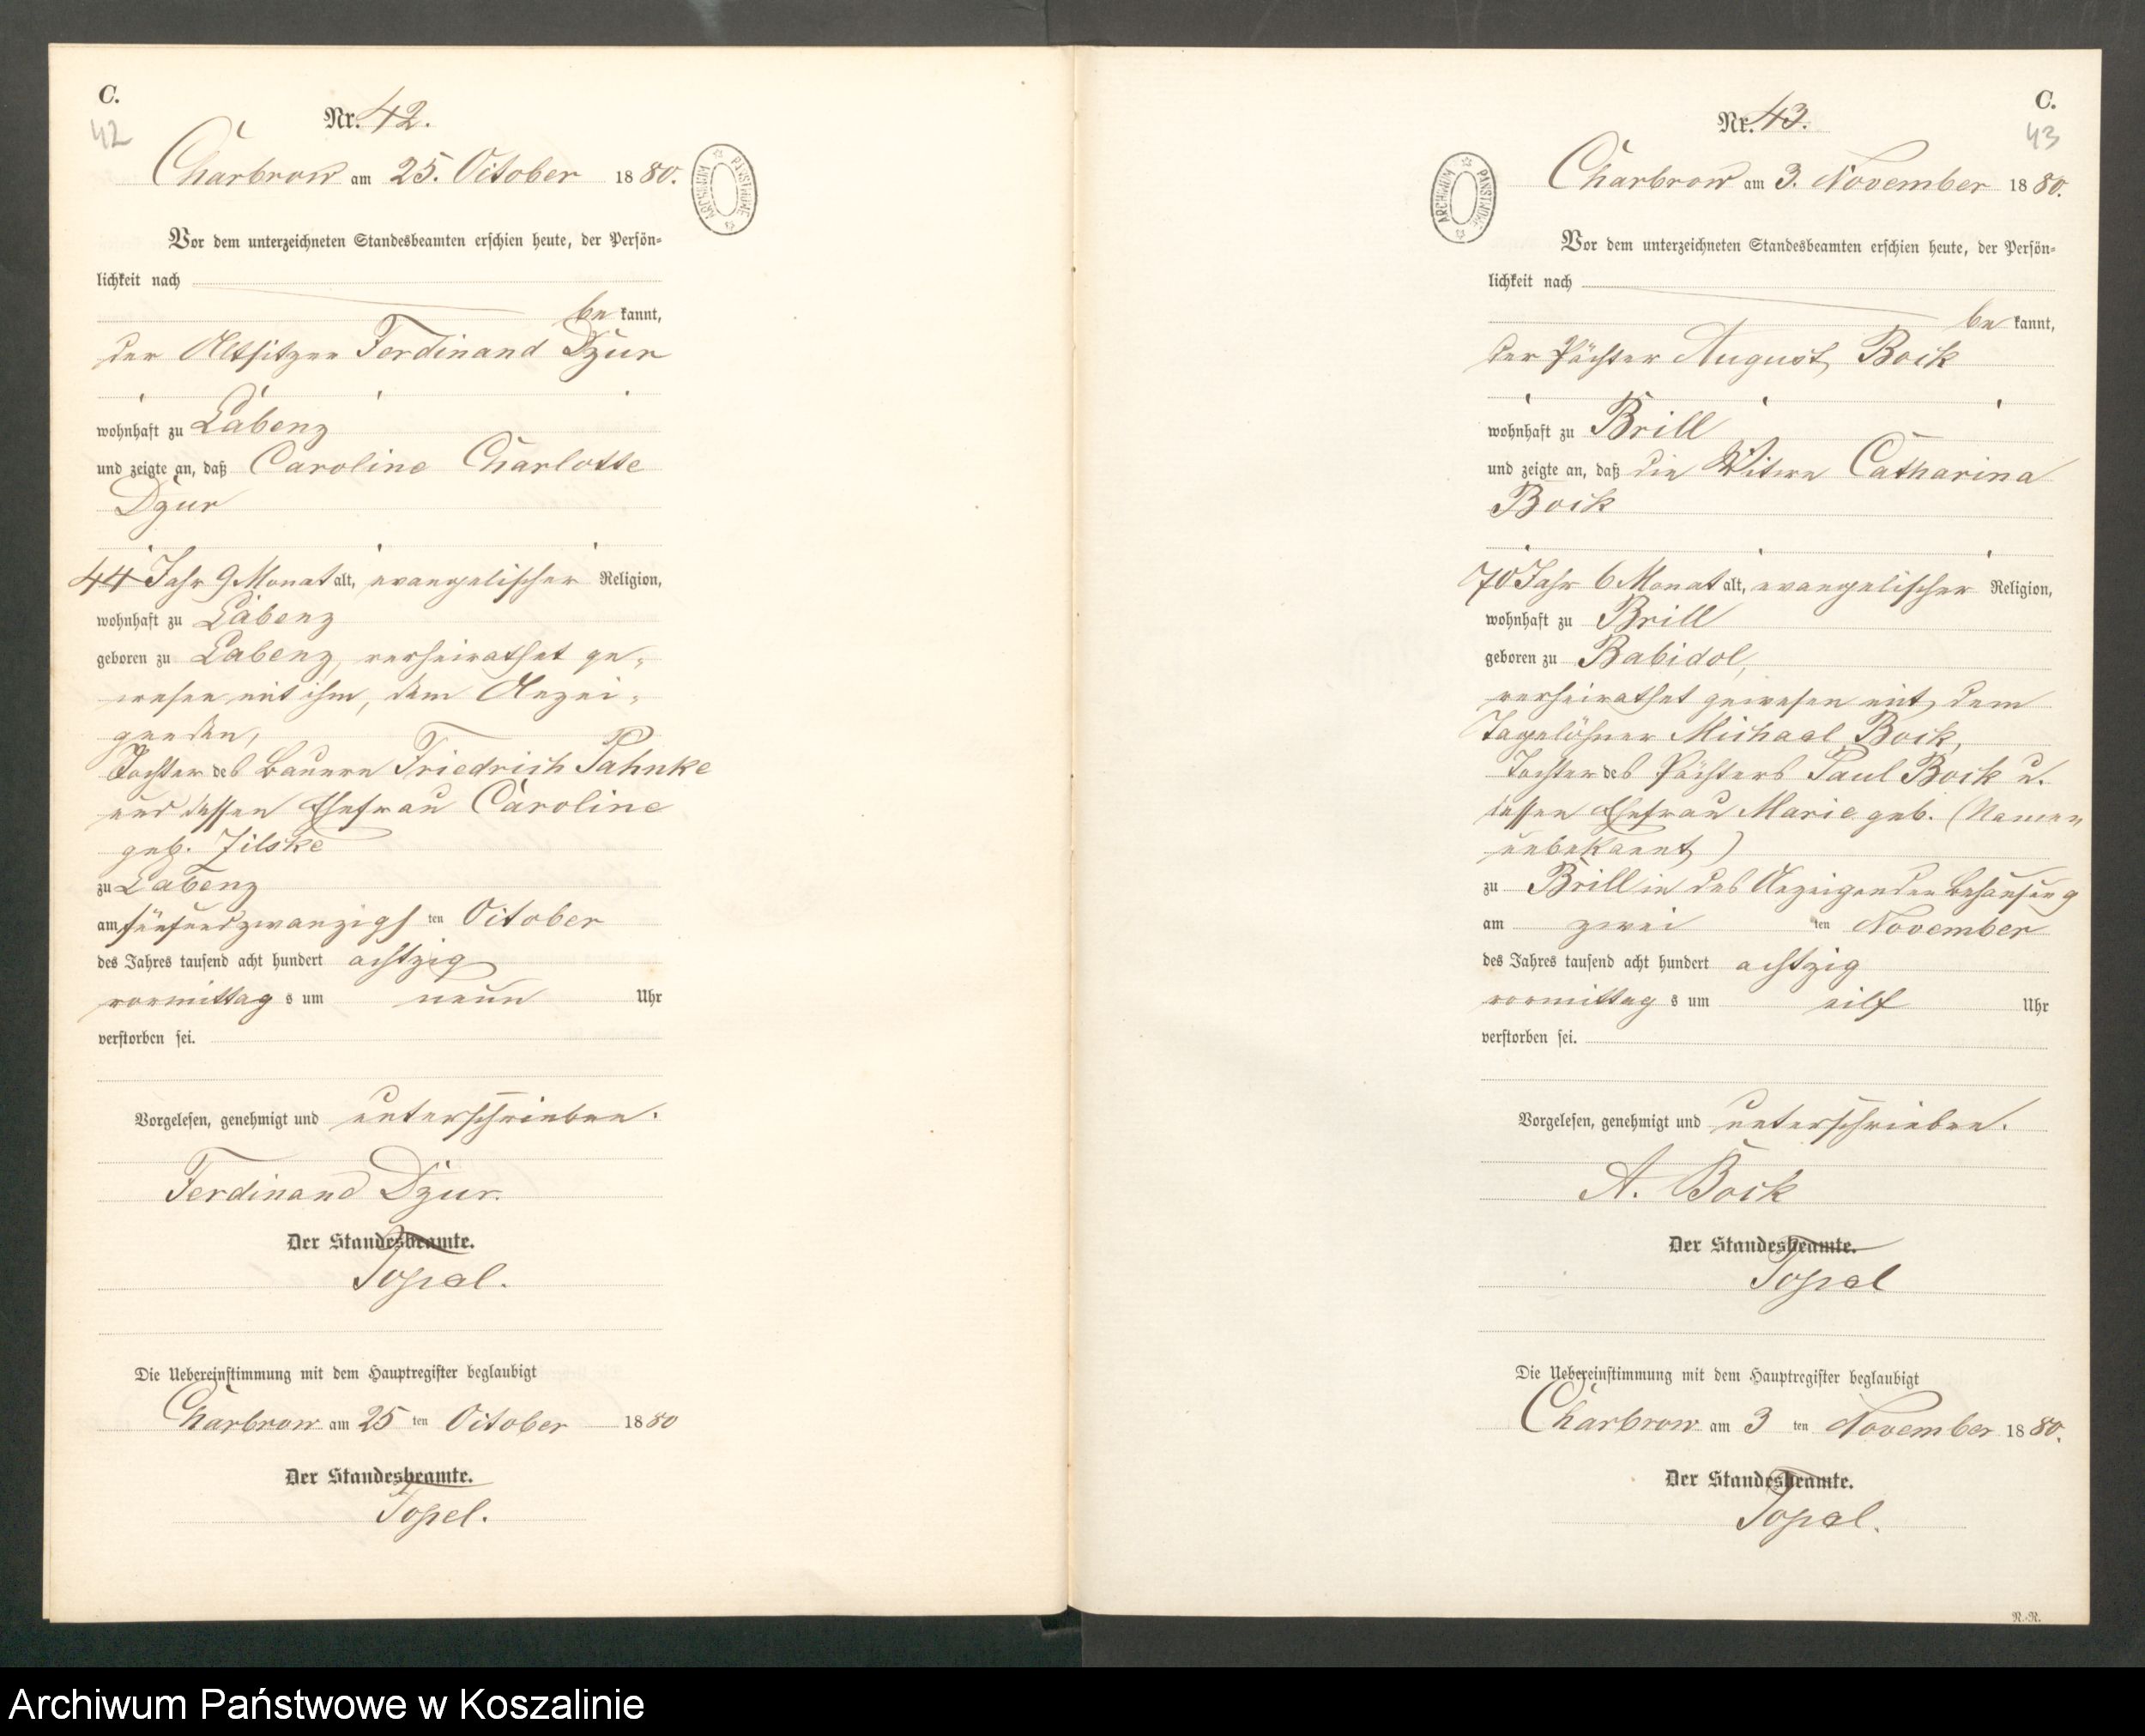 C.
42
Nr. 42.
Charbrow am 25. October 1880.
ARCHIWUM PAŃSTWOWE
Vor dem unterzeichneten Standesbeamten erschien heute, der Persön-
lichkeit nach
be kannt,
der Altsitzer Ferdinand Dzur
wohnhaft zu Labenz
und zeigte an, daß Caroline Charlotte
Dzur
44 Jahr 9 Monat alt, evangelischer Religion,
wohnhaft zu Labenz
geboren zu Labenz, verheirathet ge-
wesen mit ihm, dem Anzei-
genden,
Tochter des Bauern Friedrich Pahnke
und dessen Ehefrau Caroline
geb. Zilske
zu Labenz
am fünfundzwanzigs ten October
des Jahres tausend acht hundert achtzig
vormittag s um neun Uhr
verstorben sei.
Vorgelesen, genehmigt und unterschrieben.
Ferdinand Dzur.
Der Standesbeamte.
Topel.
Die Uebereinstimmung mit dem Hauptregister beglaubigt
Charbrow am 25 ten October 1880
Der Standesbeamte.
Topel.
C.
43
Nr. 43.
Charbrow am 3. November 1880.
ARCHIWUM PAŃSTWOWE
Vor dem unterzeichneten Standesbeamten erschien heute, der Persön-
lichkeit nach
be kannt,
der Pächter August Bock
wohnhaft zu Brill
und zeigte an, daß die Witwe Catharina
Bock
70 Jahr 6 Monat alt, evangelischer Religion,
wohnhaft zu Brill
geboren zu Babidol,
verheirathet gewesen mit dem
Tagelöhner Michael Bock,
Tochter des Pächters Paul Bock u.
dessen Ehefrau Marie geb. (Namen
unbekannt)
zu Brill in des Anzeigenden Behausung
am zwei ten November
des Jahres tausend acht hundert achtzig
vormittag s um eilf Uhr
verstorben sei.
Vorgelesen, genehmigt und unterschrieben.
A. Bock
Der Standesbeamte.
Topel
Die Uebereinstimmung mit dem Hauptregister beglaubigt
Charbrow am 3 ten November 1880.
Der Standesbeamte.
Topel.
N.-R.
Archiwum Państwowe w Koszalinie